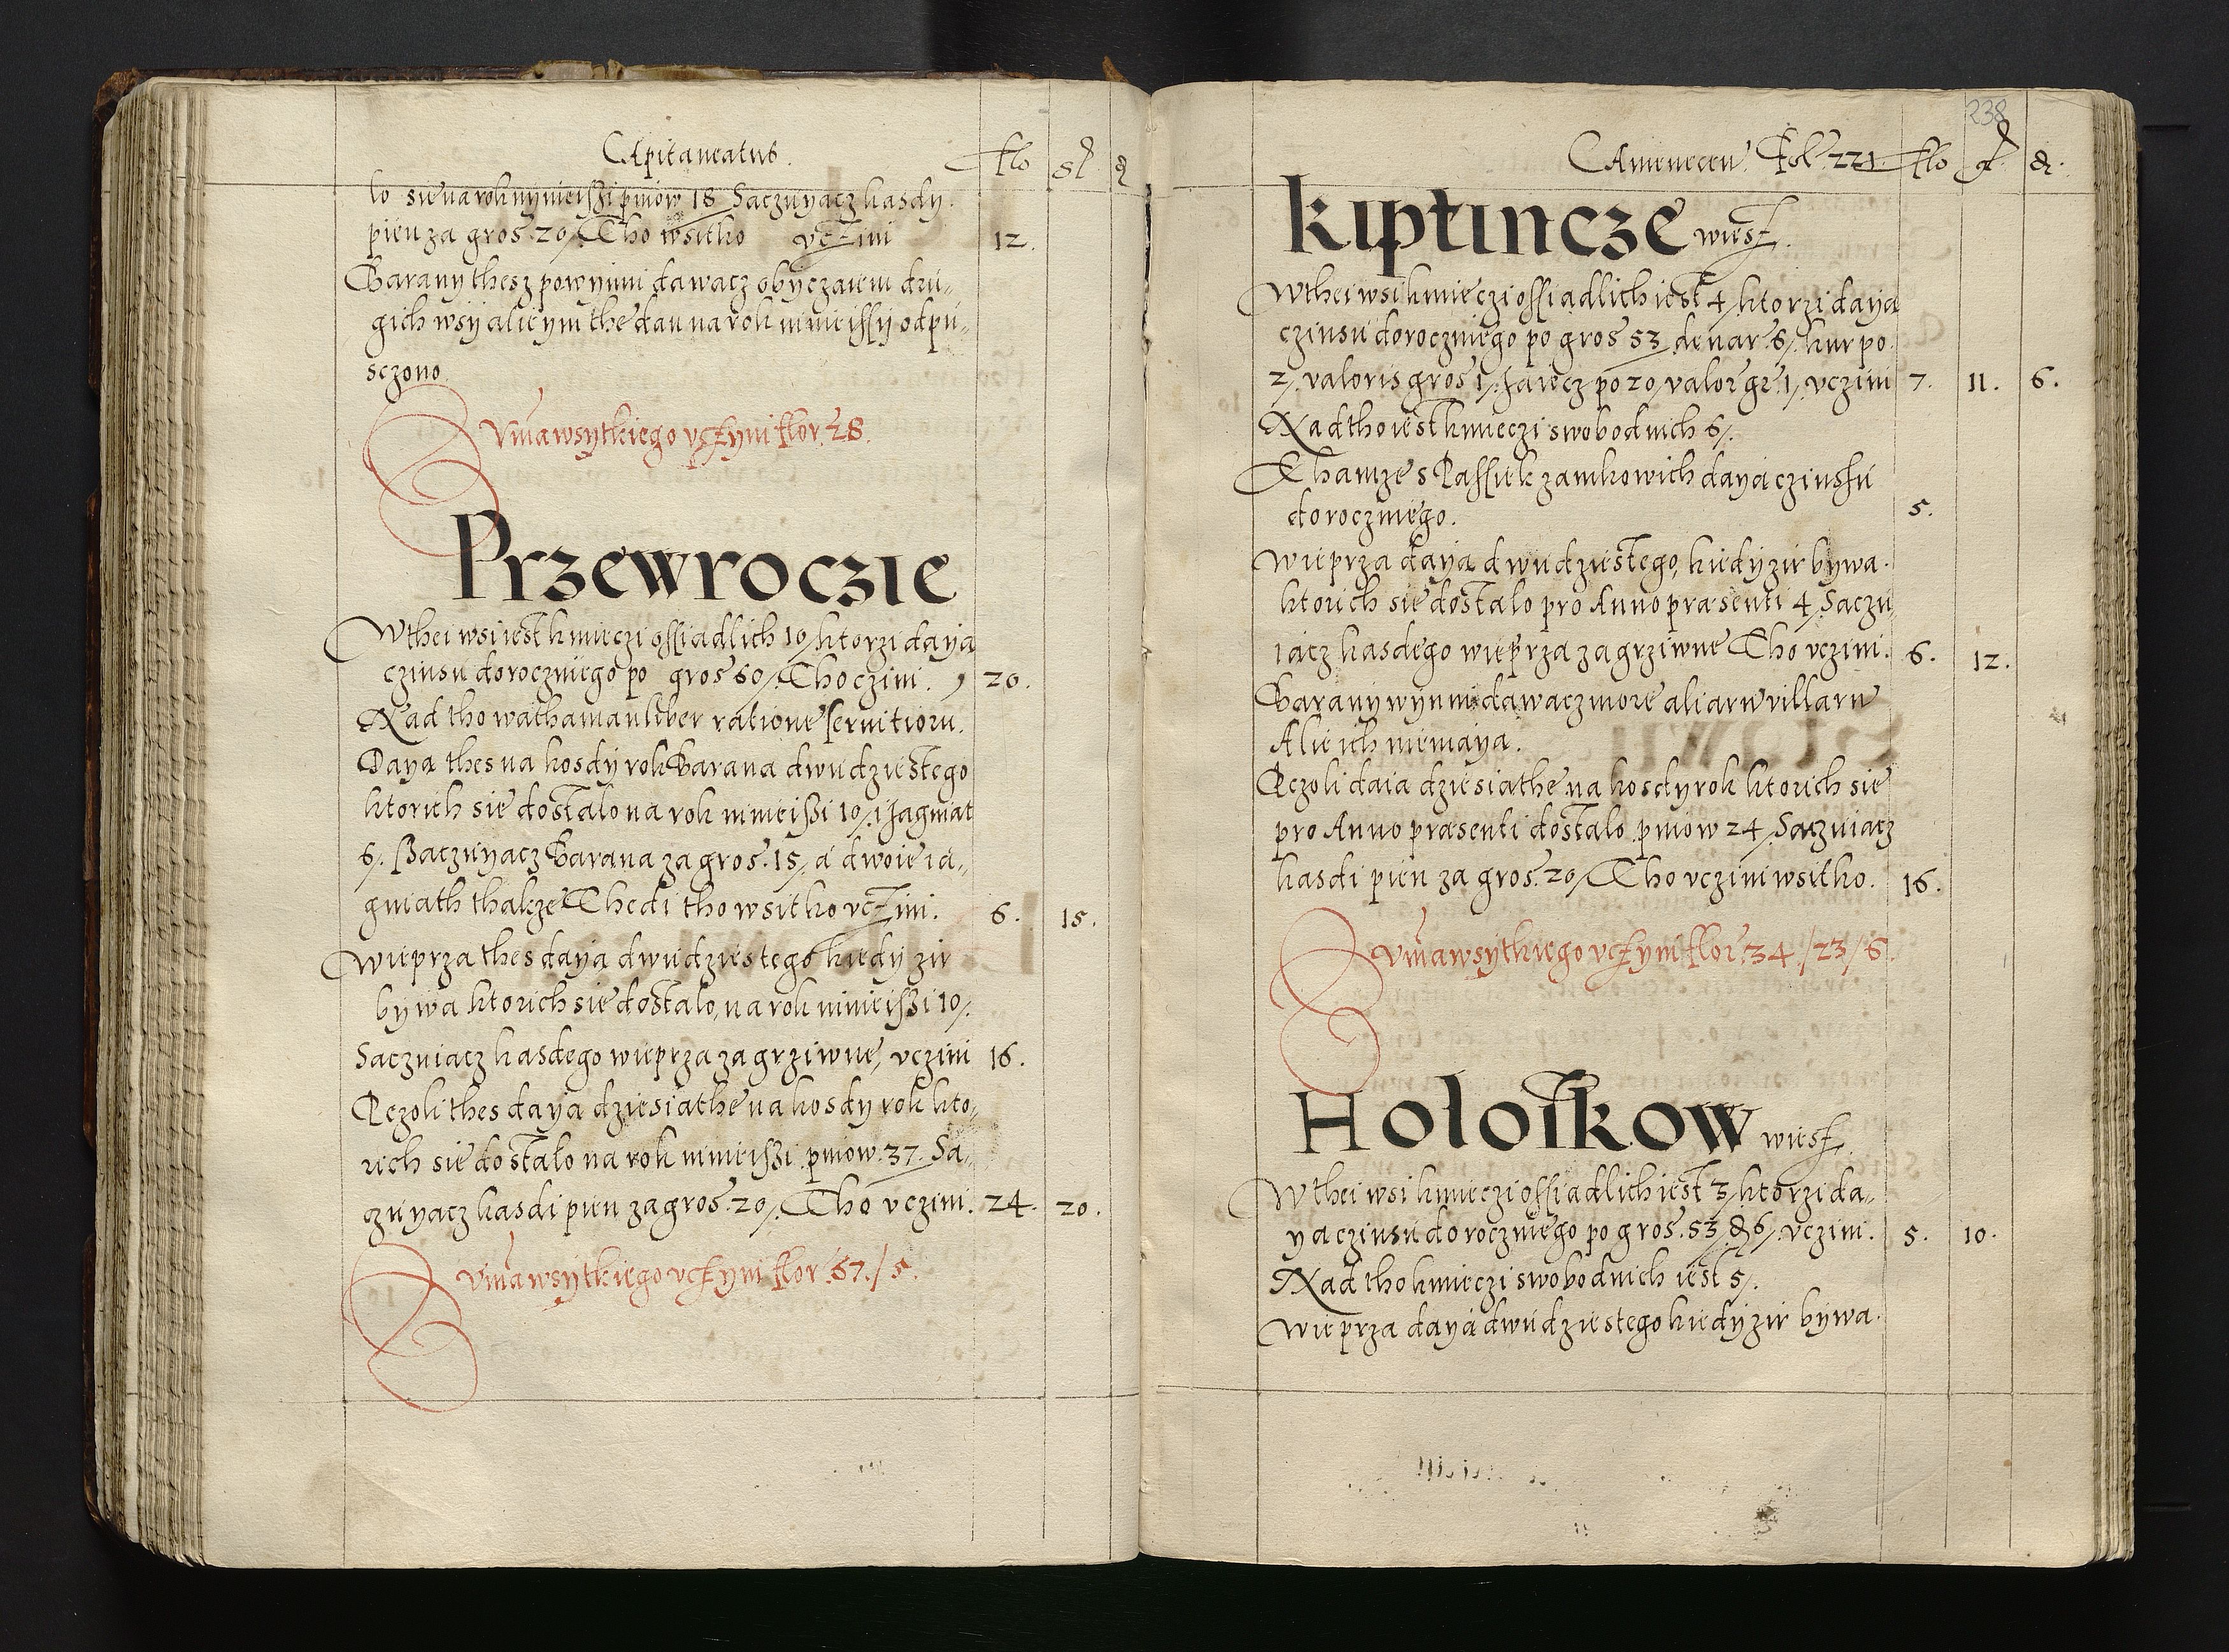 Capitaneatus. flo gr d
lo sie na rok nynieißi pniow 18 Saczuyacz kasdy
pien za gros. 20/. Tho wsitko vczini 12.
Barany thesz powynni dawacz obyczaiem dru-
gich wsy alie ym the dan na rok ninieissy odpu-
sczono.
Suma wsytkiego vczyni flor. 28.
Przewroczie
W thei wsi iest kmieczi ossiadlich 10/ ktorzi daya
czinsu doroczniego po gros 60/. Tho czini. 20.
Nad tho wathaman liber ratione seruitioru.
Daya thes na kosdy rok Barana dwudziestego
ktorich sie dostalo na rok ninieißi 10/. i Jagniat
6/. Saczuyacz Barana za gros. 15/. a dwoie ia-
gniath thakze Thedi tho wsitko vczini. 6. 15.
Wieprza thes daya dwudziestego kiedy zir
bywa ktorich sie dostalo, na rok ninieißi 10/.
Saczuiacz kasdego wieprza za grziwne, vczini 16.
Pczoli thes daya dziesiathe na kosdy rok kto-
rich sie dostalo na rok ninieißi pniow. 37. Sa-
czuyacz kasdi pien za gros. 20/. Tho vczini. 24. 20.
Suma wsytkiego vczyni flor. 67./5.
238
Camenecen. Fol. 221 flo gr d.
Kiptincze wies.
W thei wsi kmieczi ossiadlich iest 4/ ktorzi daya
czinsu doroczniego po gros 53 denar. 6/. kur po
2/. valoris gros 1/. Jaiecz po 20/ valor gr 1/. vczini 7. 11. 6.
Nad tho iest kmieczi swobodnich 6/.
Thamze s Passiek zamkowich daya czinssu
doroczniego. 5.
Wieprza daya dwudziestego, kiedy zir bywa.
ktorich sie dostalo pro Anno præsenti 4/ Saczu
iacz kasdego wieprza za grziwne Tho vczini. 6. 12.
Barany wynni dawacz more aliarum villarum
Alie ich niemaya.
Pczoli daia dziesiathe na kosdy rok ktorich sie
pro Anno præsenti dostalo pniow 24/ Saczuiacz
kasdi pien za gros. 20/ Tho vczini wsitko. 16.
Suma wsytkiego vczyni flor. 34./23/6
Holoskow wies.
W thei wsi kmieczi ossiadlich iest 3/ ktorzi da-
ya czinsu doroczniego po gros. 53 d 6/. vczini. 5. 10.
Nad tho kmieczi swobodnich iest 5/.
Wieprza daya dwudziestego kiedy zir bywa.